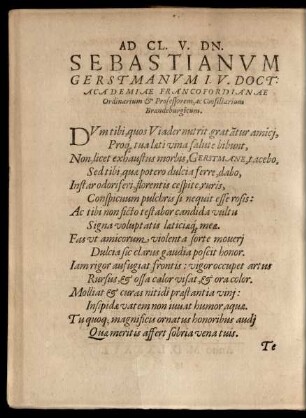 AD CL. V. DN.
SEBASTIANVM
GERSTMANVM I. V. DOCT:
ACADEMIAE FRANCOFORDIANAE
Ordinarium & Professorem, ac Consiliarium
Brandeburgicum.
DVm tibi, quos Viader nutrit gratãtur amici,
Proq, tua lati vina salute bibunt,
Non, licet exhaustus morbis, GERSTMANE, tacebo,
Sed tibi, quæ potero dulcia ferre, dabo,
Instar odoriferi, florentis cespite, ruris,
Conspicuum pulchris si nequit esse rosis:
Ac tibi non ficto testabor candida vultu
Signa voluptatis latitiæq, meæ.
Fas vt amicorum, violenta sorte moueri
Dulcia sic clarus gaudia poscit honor.
Iam rigor aufugiat frontis: vigor occupet artus
Rursus & ossa calor visat, & ora color.
Molliat & curas nitidi præstantia vini:
Insipida vatem non iuuat humor aquæ.
Tu quoq, magnificis ornatus honoribus audi
Quæ meritis affert sobria vena tuis.
Te